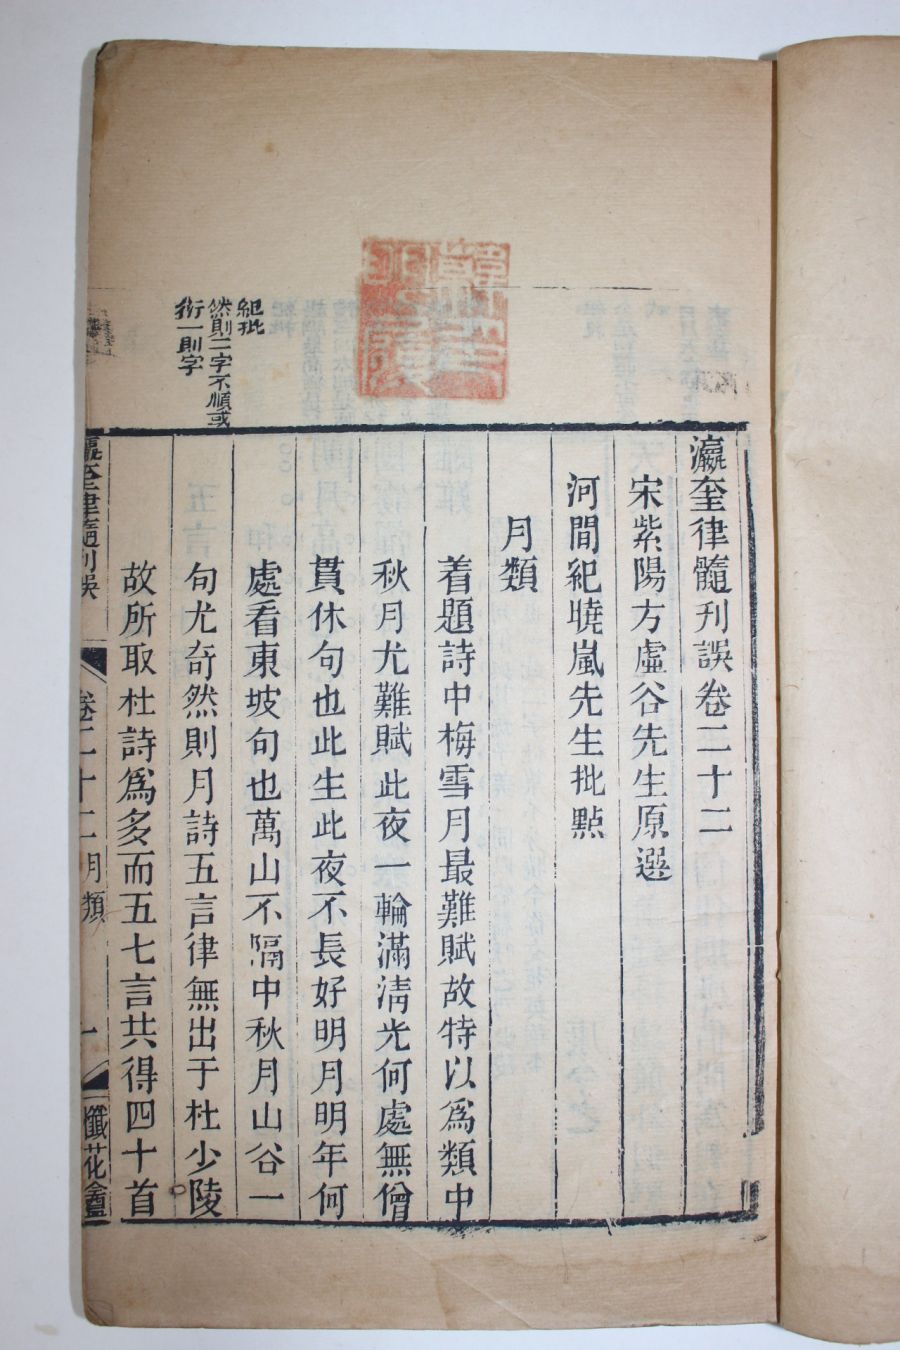 瀛奎律髓刋誤卷二十二
宋紫陽方虛谷先生原選
河間紀曉嵐先生批點
月類
着題詩中梅雪月最難賦故特以爲類中
秋月尤難賦此夜一輪滿淸光何處無僧
貫休句也此生此夜不長好明月明年何
處看東坡句也萬山不隔中秋月山谷一
句尤奇然則月詩五言律無出于杜少陵
故所取杜詩爲多而五七言共得四十首
紀批
然則二字不順或
衍一則字
瀛奎律髓刋誤
卷二十二
月類
一
懺花盦